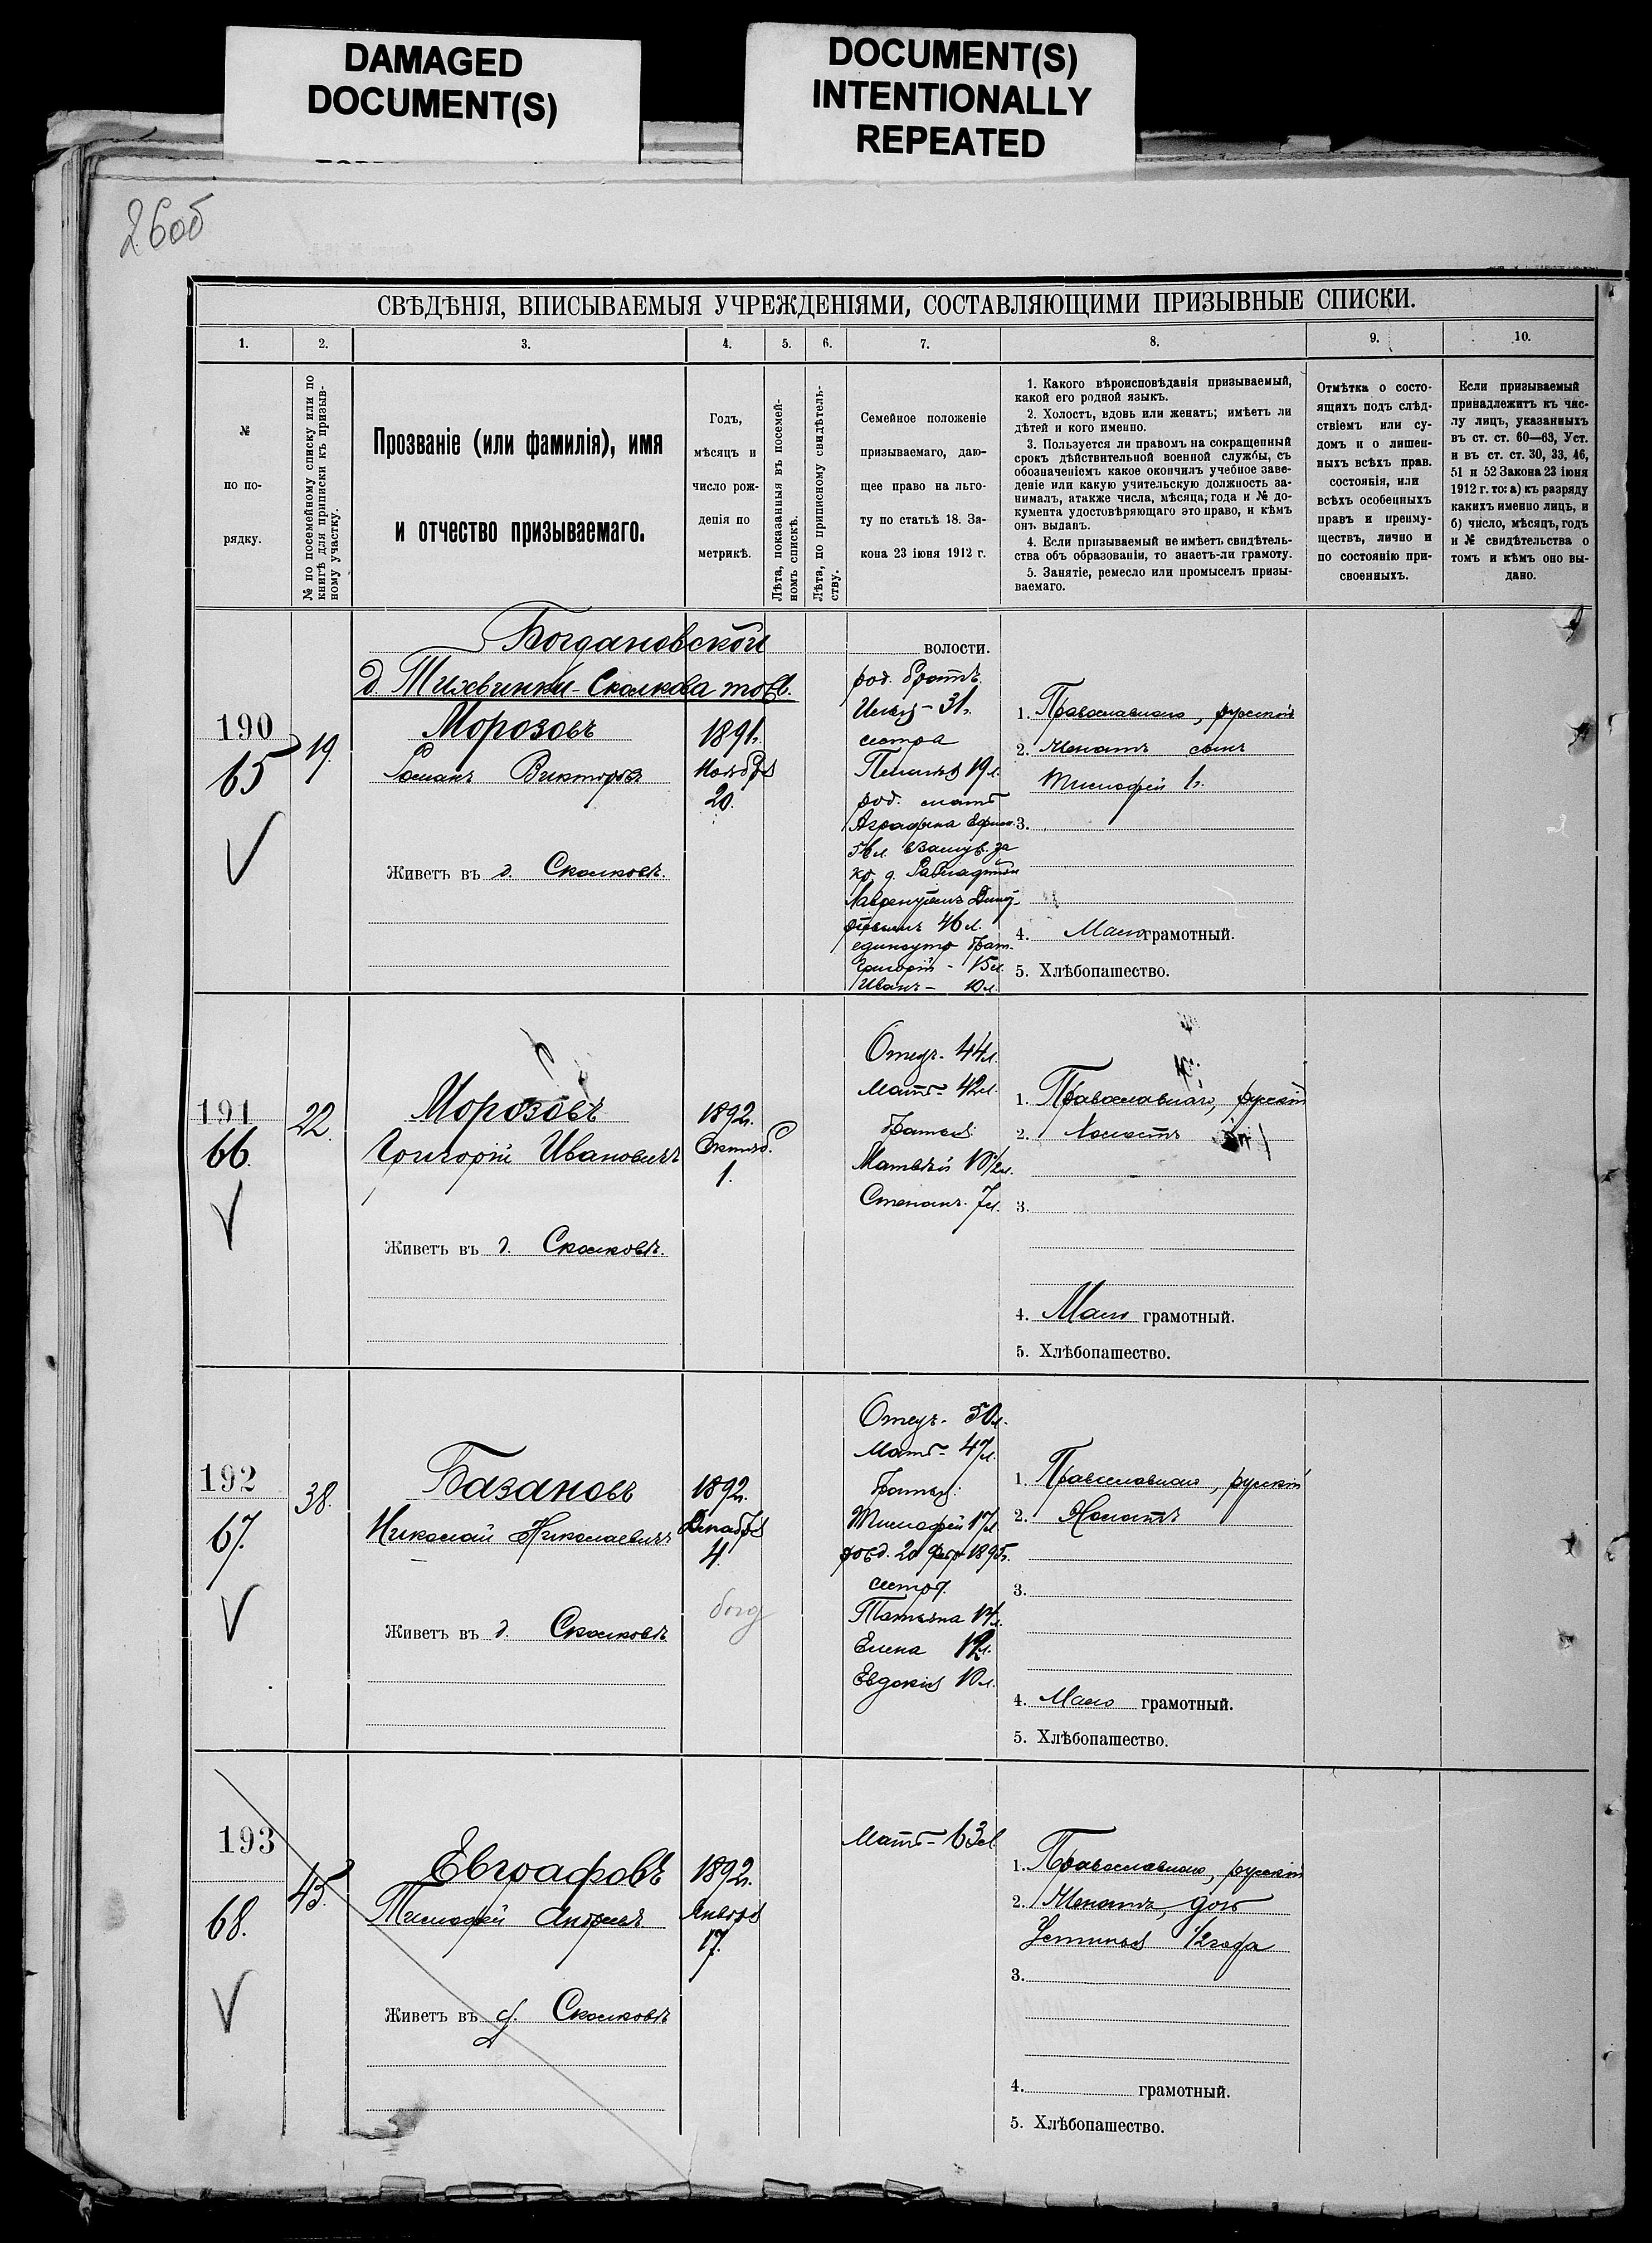 DAMAGED
DOCUMENT(S)
DOCUMENT(S)
INTENTIONALLY
REPEATED
26об
СВѢДѢНІЯ, ВПИСЫВАЕМЫЯ УЧРЕЖДЕНІЯМИ, СОСТАВЛЯЮЩИМИ ПРИЗЫВНЫЕ СПИСКИ.
1. 2. 3. 4. 5. 6. 7. 8. 9. 10.
№
по по-
рядку.
№ по посемейному списку или по
книгѣ для приписки къ призыв-
ному участку.
Прозваніе (или фамилія), имя
и отчество призываемаго.
Годъ,
мѣсяцъ и
число рож-
денія по
метрикѣ.
Лѣта, показанныя въ посемей-
номъ спискѣ.
Лѣта, по приписному свидѣтель-
ству.
Семейное положеніе
призываемаго, даю-
щее право на льго-
ту по статьѣ 18. За-
кона 23 іюня 1912 г.
1. Какого вѣроисповѣданія призываемый,
какой его родной языкъ.
2. Холостъ, вдовъ или женатъ; имѣетъ ли
дѣтей и кого именно.
3. Пользуется ли правомъ на сокращенный
срокъ дѣйствительной военной службы, съ
обозначеніемъ какое окончилъ учебное заве-
деніе или какую учительскую должность за-
нималъ, атакже числа, мѣсяца; года и № до-
кумента удостовѣряющаго это право, и кѣмъ
онъ выданъ.
4. Если призываемый не имѣетъ свидѣтель-
ства объ образованіи, то знаетъ-ли грамоту.
5. Занятіе, ремесло или промыселъ призы-
ваемаго.
Отмѣтка о состо-
ящихъ подъ слѣд-
ствіемъ или су-
домъ и о лишен-
ныхъ всѣхъ прав.
состоянія, или
всѣхъ особенныхъ
правъ и преиму-
ществъ, лично и
по состоянію при-
своенныхъ.
Если призываемый
принадлежитъ къ чис-
лу лицъ, указанныхъ
въ ст. ст. 60—63, Уст.
и въ ст. ст. 30, 33, 46,
51 и 52 Закона 23 іюня
1912 г. то: а) къ разряду
какихъ именно лицъ, и
б) число, мѣсяцъ, годъ
и № свидѣтельства о
томъ и кѣмъ оно вы-
дано.
Богдановской волости.
д. Тихвинки-Скалкова тов.
190
65
19.
Морозовъ
Романъ Викторовъ
Живетъ въ д. Скалковѣ.
1891г.
Ноября
20.
род. братъ
Илья - 31г.
сестра
19 л.
род. мать
Аграфена Ефим.
56 л. взамуж. за
кр. д.
Лаврентіемъ
46 л.
единоутр. брат.
Григорій - 15 л.
Иванъ - 10 л.
1. Православнаго, русскій
2. Женатъ сынъ
Тимофей 1г.
3.
4. Мало грамотный.
5. Хлѣбопашество.
191
66.
22.
Морозовъ
Григорій Ивановичъ
Живетъ въ д. Скалковѣ.
1892г.
Октяб.
1.
Отецъ - 44 л.
Мать - 42 л.
Братья:
Матвѣй 10 1/2 л.
Степанъ 7 л.
1. Православнаго, русскій
2. Холостъ
3.
4. Мало грамотный.
5. Хлѣбопашество.
192
67.
38.
Базановъ
Николай Николаевичъ
Живетъ въ д. Скалковѣ
1892г.
Декабря
4.
богд
Отецъ - 50 л.
Мать - 47 л.
Братья:
Тимофей 17 л.
рожд. 20 Февр 1895г.
сестры
Татьяна 14 л.
Елена 12 л.
Евдокія 10 л.
1. Православнаго, русскій
2. Холостъ
3.
4. Мало грамотный.
5. Хлѣбопашество.
193
68.
45.
Евграфовъ
Тимофей Андреевъ
Живетъ въ д. Скалковѣ
1892г.
Января
17.
Мать - 63 л
1. Православнаго, русскій
2. Женатъ, дочь
Устинья 1/2 года
3.
4. грамотный.
5. Хлѣбопашество.